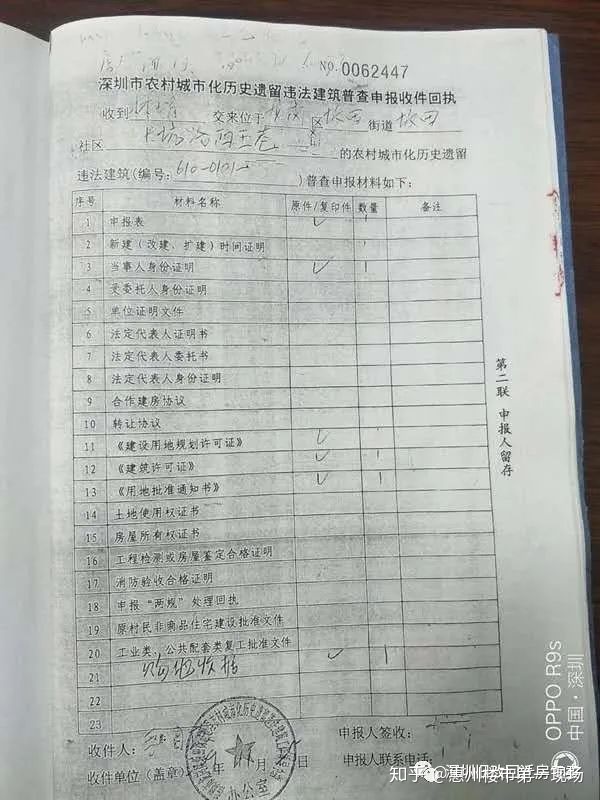 NO.0062447
深圳市农村城市化历史遗留违法建筑普查申报收件回执
收到 交来位于 区 坂田 街道 坂田
社区 的农村城市化历史遗留
违法建筑(编号: )普查申报材料如下:
序号 材料名称 原件/复印件 数量 备注
1 申报表 ✓ 1
2 新建(改建、扩建)时间证明
3 当事人身份证明 ✓ 1
4 受委托人身份证明
5 单位证明文件
6 法定代表人证明书
7 法定代表人委托书
8 法定代表人身份证明
9 合作建房协议
10 转让协议
11 《建设用地规划许可证》 ✓ 1
12 《建筑许可证》 ✓ 1
13 《用地批准通知书》 ✓ 1
14 土地使用权证书
15 房屋所有权证书
16 工程检测或房屋鉴定合格证明
17 消防验收合格证明
18 申报“两规”处理回执
19 原村民非商品住宅建设批准文件
20 工业类、公共配套类复工批准文件
21 收据 ✓ 1
22
23
收件人: 申报人签收:
收件单位(盖章) 申报人联系电话
办公室
第二联 申报人留存
OPPO R9s
中国·深圳
知乎 @惠州楼市第一现场